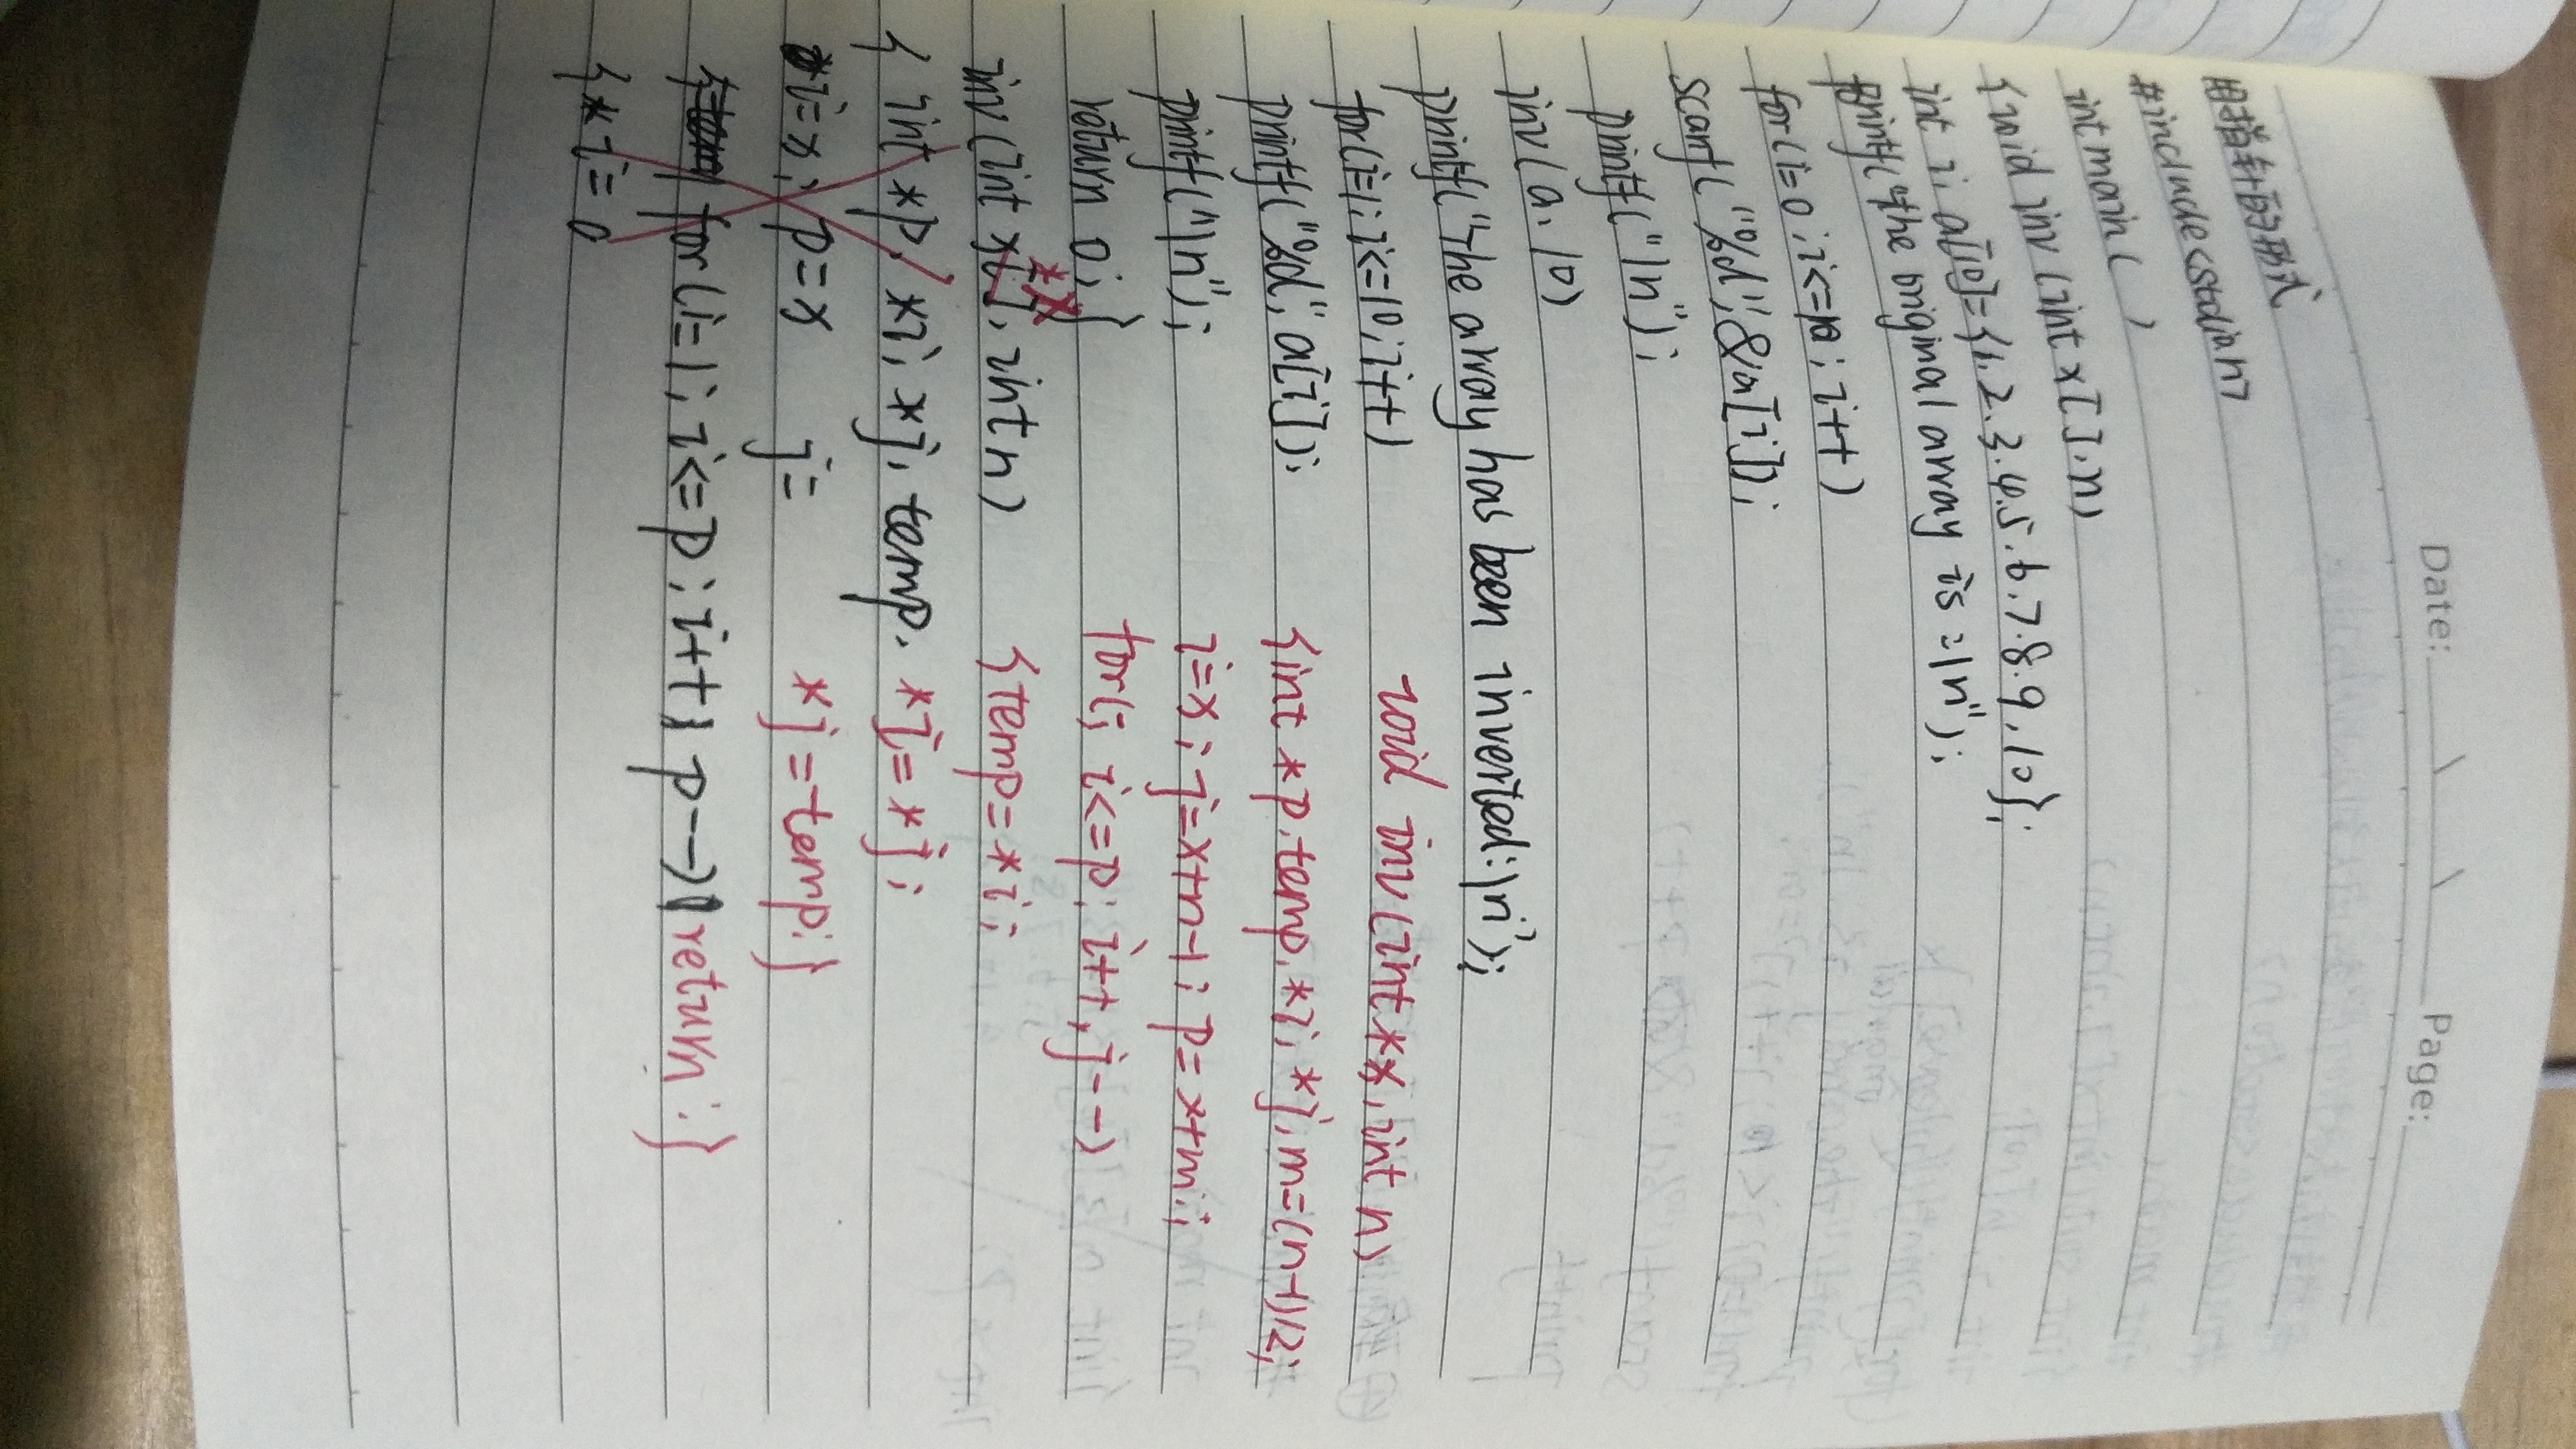 Date: Page:
用指针的形式
#include<stdio.h>
int main( )
{void inv(int x[].n)
int i, a[10]={1,2.3.4.5.6.7.8.9,10};
printf("the original array is :\n");
for(i=0;i<=10;i++)
scanf("%d",&a[i]);
printf("\n");
inv(a.10)
printf("The array has been inverted:\n");
for(i=1;i<=10;i++)
printf("%d",a[i]);
printf("\n");
return 0;}
inv(int x[], int n)
*x
{ int *p, *i, *j, temp.
*i=x; p=x j=
for(i=1;i<=p;i++ p--)
{*i= 0
void inv(int *x,int n)
{int *p.temp,*i,*j,m=(n-1)/2;
i=x; j=x+n-1; p=x+m;
for(; i<=p; i++,j--)
{temp=*i;
*i=*j;
*j=temp;}
return;}